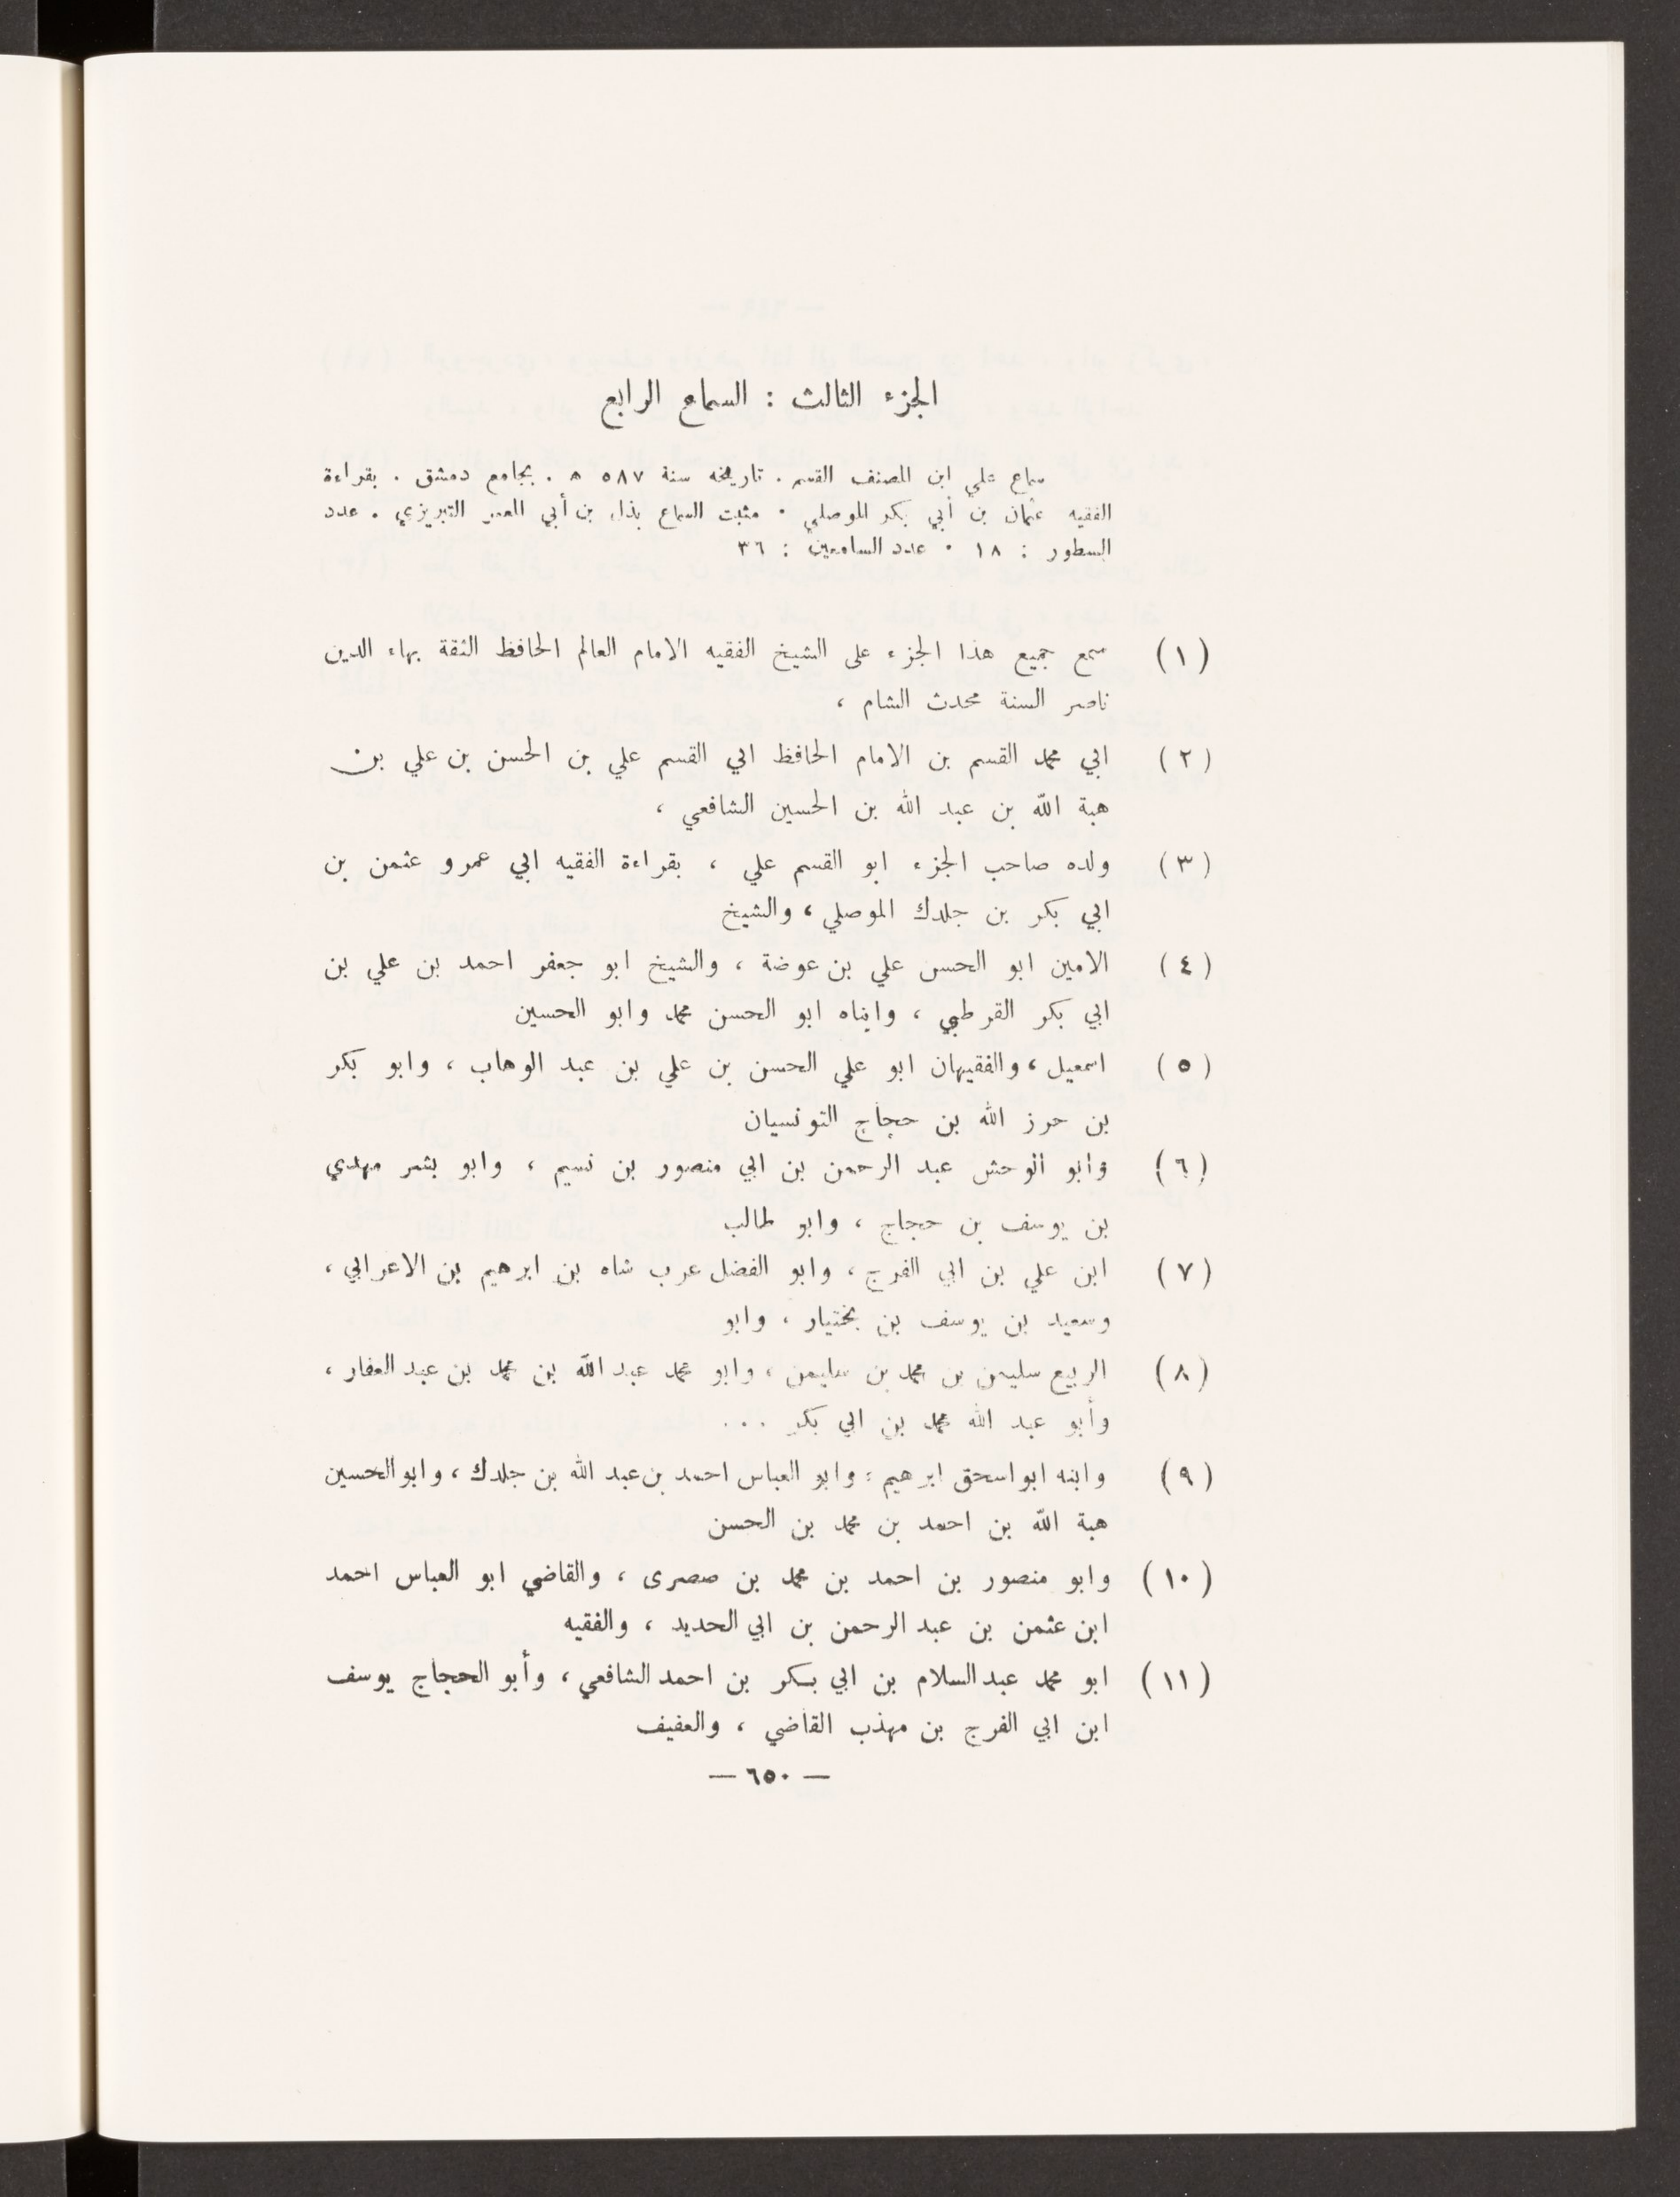 الجزء الثالث : السماع الرابع
سماع على ابن المصنف القسم . تاريخه سنة ٥٨٧ ه . بجامع دمشق . بقراءة
الفقيه عثمان بن أبي بكر الموصلي . مثبت السماع بذل بن أبي المعمر التبريزي . عدد
السطور : ١٨ . عدد السامعين : ٣٦
(١) سمع جميع هذا الجزء على الشيخ الفقيه الامام العالم الحافظ الثقة بهاء الدين
ناصر السنة محدث الشام ،
(٢) ابي محمد القسم بن الامام الحافظ ابي القسم علي بن الحسن بن علي بن
هبة الله بن عبد الله بن الحسين الشافعي ،
(٣) ولده صاحب الجزء ابو القسم علي ، بقراءة الفقيه ابي عمرو عثمن بن
ابي بكر بن جلدك الموصلي ، والشيخ
(٤) الامين ابو الحسن علي بن عوضة ، والشيخ ابو جعفر احمد بن علي بن
ابي بكر القرطبي ، وابناه ابو الحسن محمد وابو الحسين
(٥) اسمعيل ، والفقيهان ابو علي الحسن بن علي بن عبد الوهاب ، وابو بكر
بن حرز الله بن حجاج التونسيان
(٦) وابو الوحش عبد الرحمن بن ابي منصور بن نسيم ، وابو بشر مهدي
بن يوسف بن حجاج ، وابو طالب
(٧) ابن علي بن ابي الفرج ، وابو الفضل عرب شاه بن ابرهيم بن الاعرابي ،
وسعيد بن يوسف بن بختيار ، وابو
(٨) الربيع سليمن بن محمد بن سليمن ، وابو محمد عبد الله بن محمد بن عبد الغفار ،
وأبو عبد الله محمد بن ابي بكر ...
(٩) وابنه ابو اسحق ابرهيم ؛ وابو العباس احمد بن عبد الله بن جلدك ، وابو الحسين
هبة الله بن احمد بن محمد بن الحسن
(١٠) وابو منصور بن احمد بن محمد بن صصرى ، والقاضي ابو العباس احمد
ابن عثمن بن عبد الرحمن بن ابي الحديد ، والفقيه
(١١) ابو محمد عبد السلام بن ابي بكر بن احمد الشافعي ، وأبو الحجاج يوسف
ابن ابي الفرج بن مهذب القاضي ، والعفيف
— ٦٥٠ —